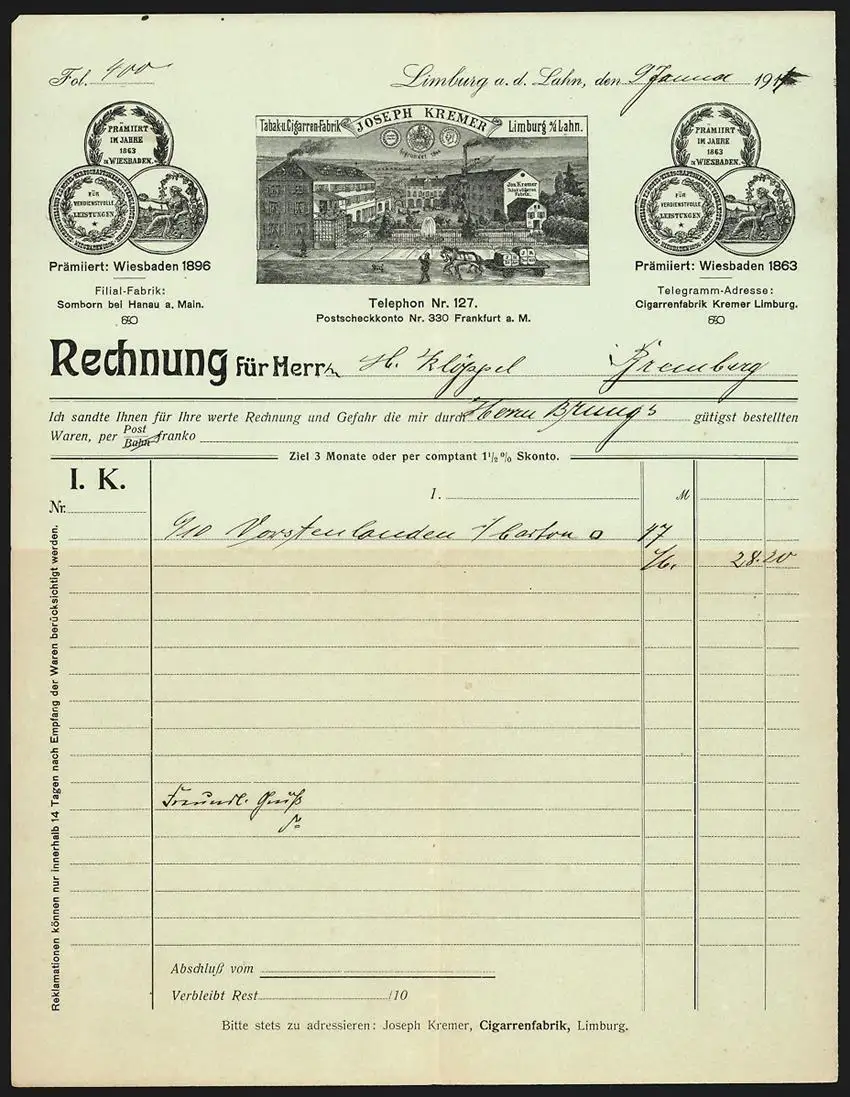 Fol. 400
Limburg a. d. Lahn, den 9 Januar 191
PRÄMIIRT
IM JAHRE
1863
in WIESBADEN.
FÜR
VERDIENSTVOLLE
LEISTUNGEN
Prämiiert: Wiesbaden 1896
Filial-Fabrik:
Somborn bei Hanau a. Main.
Tabak-u. Cigarren-Fabrik
JOSEPH KREMER
Limburg a/d Lahn.
Gegründet
Jos. Kremer
Tabak u. Cigarren
Fabrik.
Telephon Nr. 127.
Postscheckkonto Nr. 330 Frankfurt a. M.
PRÄMIIRT
IM JAHRE
1863
in WIESBADEN.
FÜR
VERDIENSTVOLLE
LEISTUNGEN
Prämiiert: Wiesbaden 1863
Telegramm-Adresse:
Cigarrenfabrik Kremer Limburg.
Rechnung für Herrn H. Klöppel Bremberg
Ich sandte Ihnen für Ihre werte Rechnung und Gefahr die mir durch Herrn Brungs gütigst bestellten
Waren, per Post Bahn franko
Ziel 3 Monate oder per comptant 1 1/2 % Skonto.
I. K.
Nr.
1.
M
6/10 Vorstenlanden 1/ Carton 47
1/6. 28.20
Freundl. Gruß
Abschluß vom
Verbleibt Rest /10
Reklamationen können nur innerhalb 14 Tagen nach Empfang der Waren berücksichtigt werden.
Bitte stets zu adressieren: Joseph Kremer, Cigarrenfabrik, Limburg.